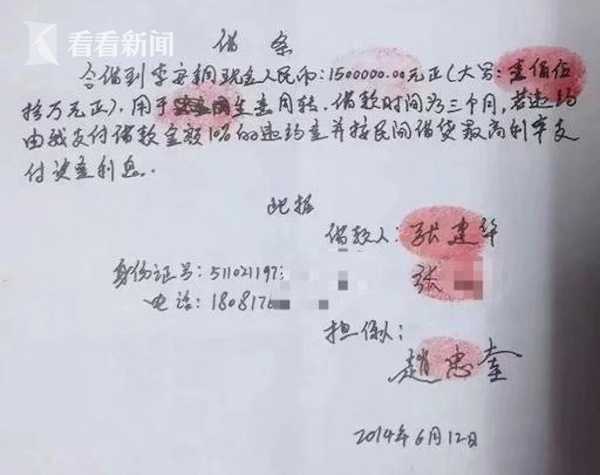 看看新闻
借条
今借到李安钢现金人民币:1500000.00元正(大写:壹佰伍
拾万元正),用于生意周转,借款时间为三个月,若违约
由我支付借款金额10%的违约金并按民间借贷最高利率支
付资金利息.
此据
借款人:张建华
身份证号:511021197
张
电话:180817
担保人:
赵忠奎
2014年6月12日